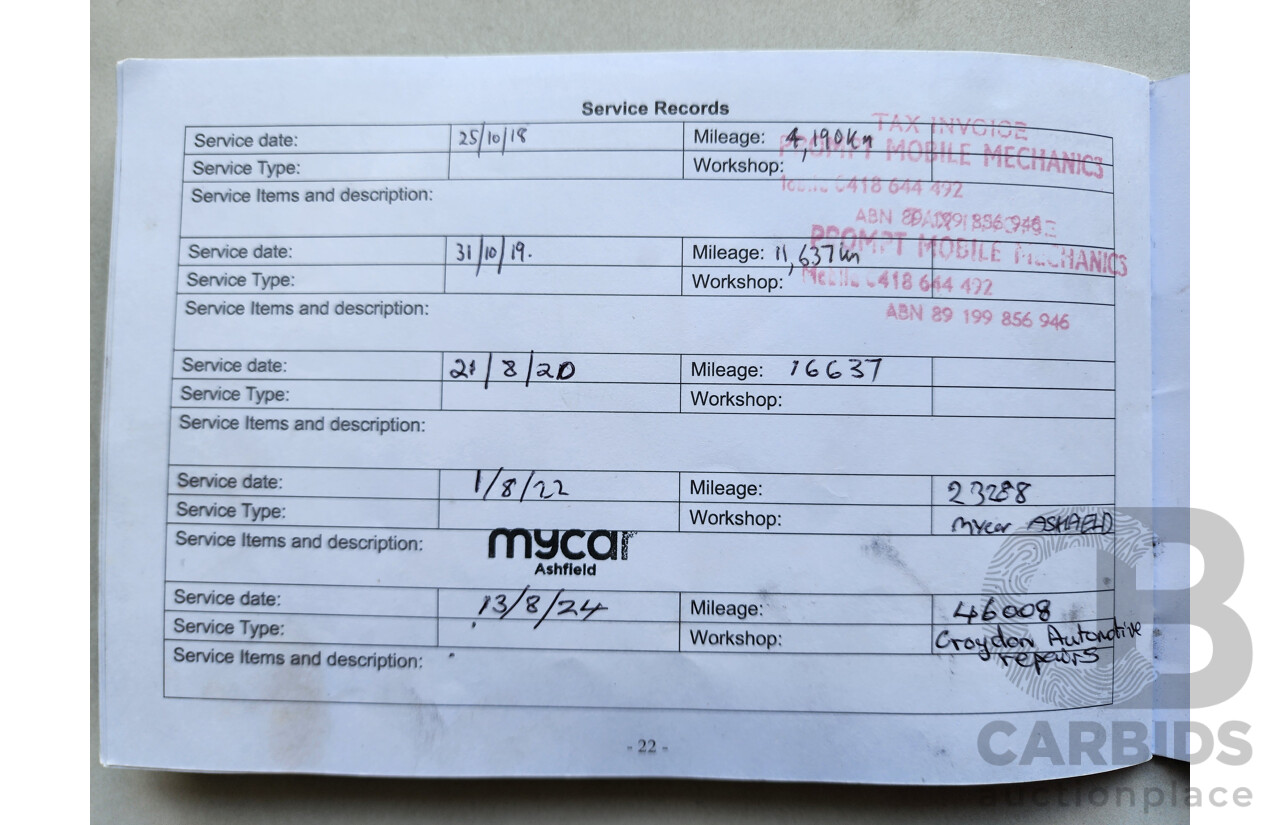 Service Records
TAX INVOICE
Service date: 25/10/18 Mileage: 4,190km
PROMPT MOBILE MECHANICS
Service Type: Workshop:
0418 644 492
Service Items and description:
ABN 89 199 856 946
Service date: 31/10/19. Mileage: 11,637km
PROMPT MOBILE MECHANICS
Service Type: Workshop:
Mobile 0418 644 492
Service Items and description:
ABN 89 199 856 946
Service date: 21/8/20 Mileage: 16637
Service Type: Workshop:
Service Items and description:
Service date: 1/8/22 Mileage: 23288
Service Type: Workshop: Mycar ASHFIELD
Service Items and description: mycar
Ashfield
Service date: 13/8/24 Mileage: 46008
Service Type: Workshop: Croydon Automotive
Service Items and description: repairs
- 22 -
CARBIDS
auctionplace